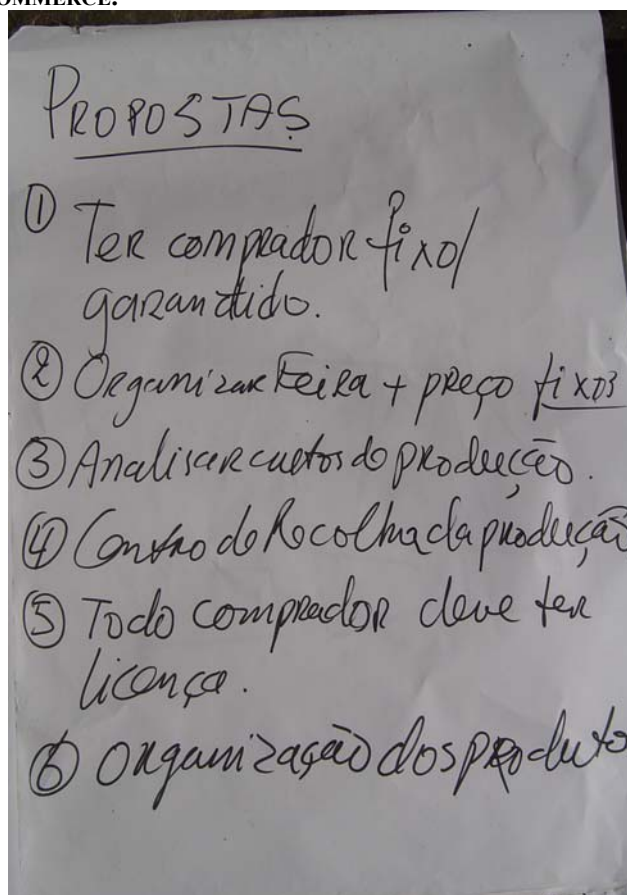 OMMERCE.
PROPOSTAS
① Ter comprador fixo/
garandtido.
② Organizar Feira + preço fixos
③ Analisar custos do producção.
④ Centro de Recolha da produção
⑤ Todo comprador deve ter
licença.
⑥ Organização dos produto